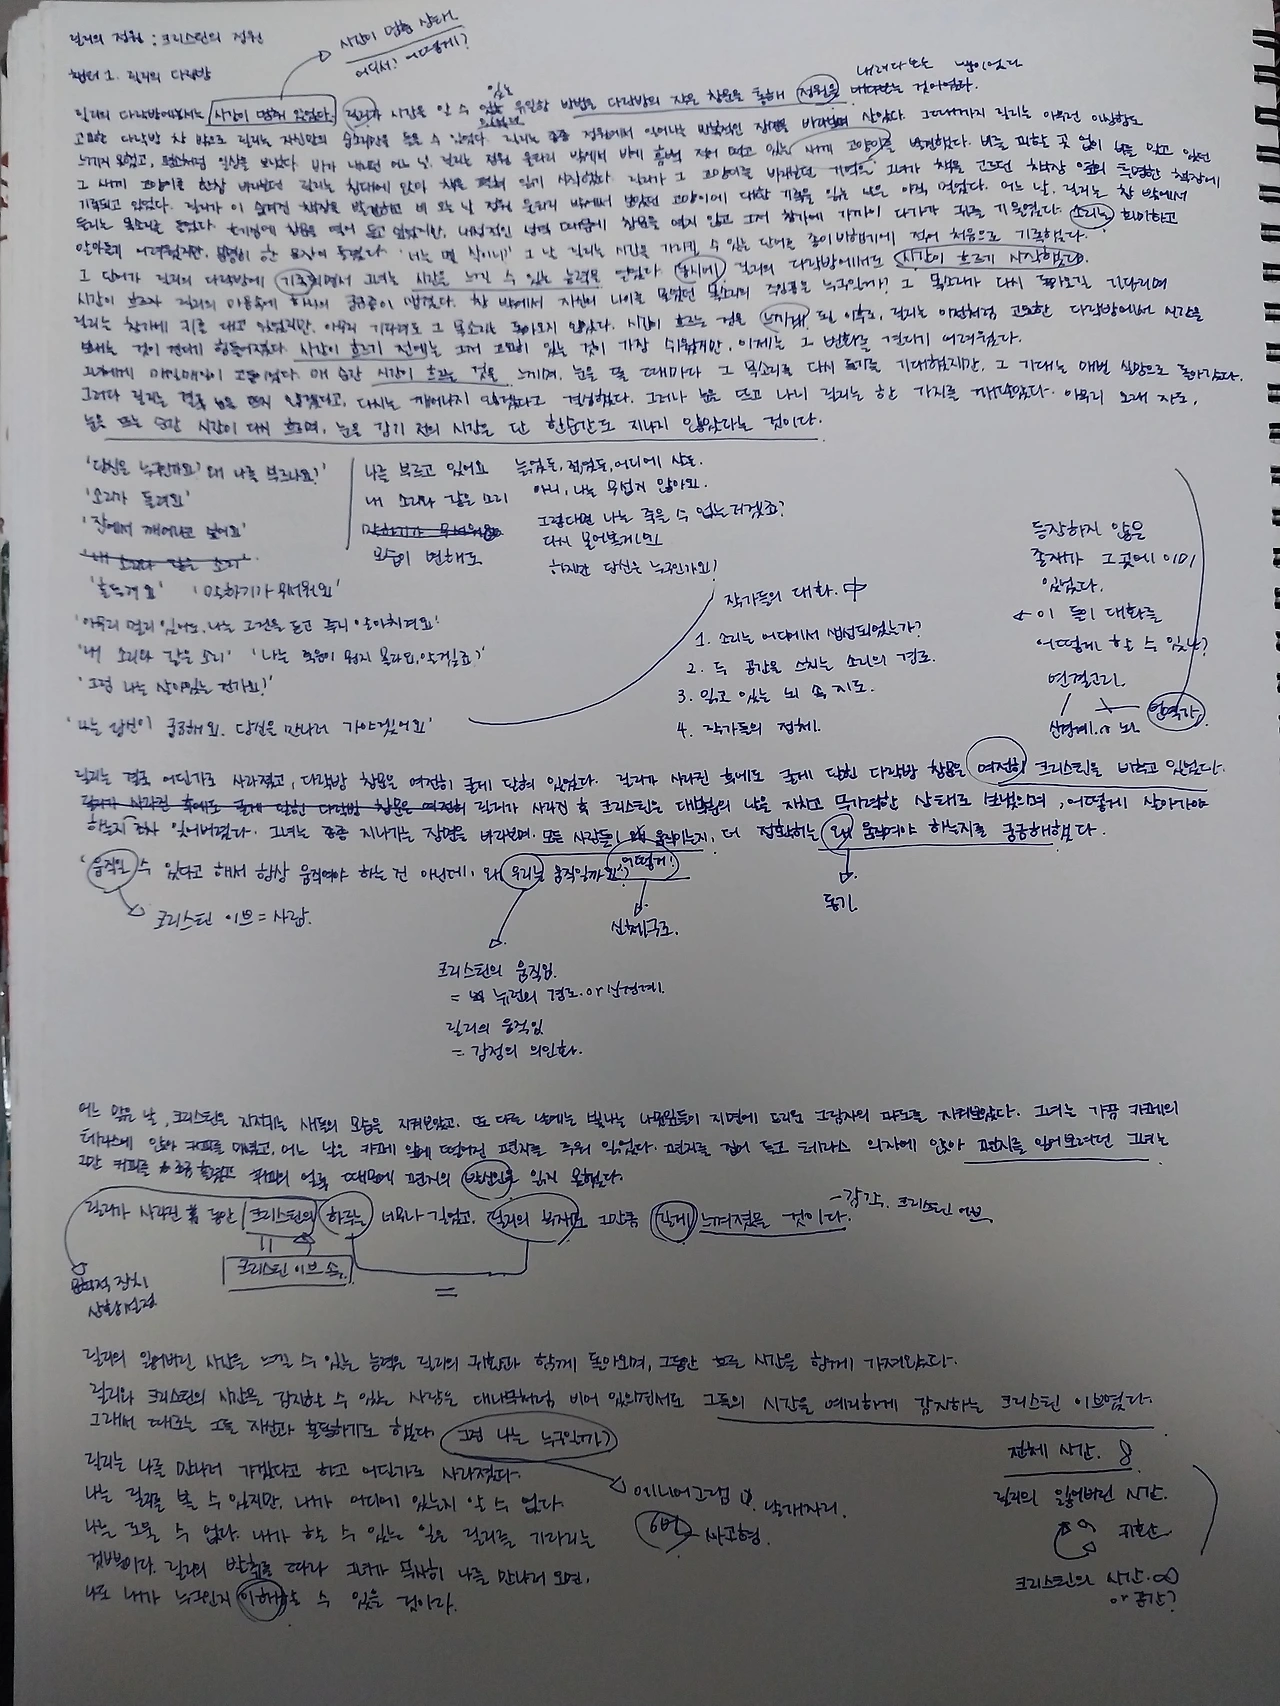 릴리의 정원 : 크리스틴의 정원
시간이 멈춘 상태.
어디서? 어떻게?
챕터 1. 릴리의 다락방
내려다 보는 것이었다
릴리의 다락방에서는 시간이 멈춰 있었다. 릴리가 시간을 알 수 있는 유일한 방법은 다락방의 작은 창문을 통해 정원을 내다보는 것이었다.
고요한 다락방 창 밖으로 릴리는 자신만의 숨소리만을 들을 수 있었다. 릴리는 종종 정원에서 일어나는 비극적인 장면을 바라보며 살았다. 그때까지 릴리는 아무런 이상함도
느끼지 못했고, 평소처럼 일상을 보냈다. 비가 내리던 어느 날, 릴리는 정원 울타리 밖에서 비에 흠뻑 젖어 떨고 있는 새끼 고양이를 발견했다. 비를 피할 곳 없이 비를 맞고 있던
그 새끼 고양이를 한참 바라보던 릴리는 침대에 앉아 책을 펼쳐 읽기 시작했다. 릴리가 그 고양이를 바라보던 기억은 그녀가 책을 고르던 책장 옆의 투명한 책장에
기록되고 있었다. 릴리가 이 숨겨진 책장을 발견하고 비 오는 날 정원 울타리 밖에서 보았던 고양이에 대한 기록을 읽는 날은 아직 멀었다. 어느 날, 릴리는 창 밖에서
들리는 목소리를 들었다. 호기심에 창문을 열어 듣고 싶었지만, 내성적인 성격 때문에 창문을 열지 않고 그저 창가에 가까이 다가가 귀를 기울였다. 소리는 희미하고
알아듣기 어려웠지만, 분명히 한 문장이 들렸다. '너는 몇 살이니?' 그 날 릴리는 시간을 가리킬 수 있는 단어를 종이비행기에 적어 처음으로 기록했다.
그 단어가 릴리의 다락방에 기록되면서 그녀는 시간을 느낄 수 있는 능력을 얻었다. 동시에 릴리의 다락방에서도 시간이 흐르기 시작했다.
시간이 흐르자 릴리의 마음속에 하나의 궁금증이 생겼다. 창 밖에서 자신의 나이를 물었던 목소리의 주인공은 누구일까? 그 목소리가 다시 돌아오길 기다리며
릴리는 창가에 귀를 대고 있었지만, 아무리 기다려도 그 목소리는 돌아오지 않았다. 시간이 흐르는 것을 느끼게 된 이후로, 릴리는 이전처럼 고요한 다락방에서 시간을
보내는 것이 견디기 힘들어졌다. 시간이 흐르기 전에는 그저 고요히 있는 것이 가장 쉬웠지만, 이제는 그 변화를 견디기 어려웠다.
그녀에게 매일매일이 고통이었다. 매 순간 시간이 흐르는 것을 느끼며, 눈을 뜰 때마다 그 목소리를 다시 듣기를 기대했지만, 그 기대는 매번 실망으로 돌아갔다.
그러다 릴리는 결국 눈을 뜨지 않겠다고, 다시는 깨어나지 않겠다고 결심했다. 그러나 눈을 뜨고 나니 릴리는 한 가지를 깨달았다. 아무리 오래 자도,
눈을 뜨는 순간 시간이 다시 흐르며, 눈을 감기 전의 시간은 단 한순간도 지나지 않았다는 것이다.
'당신은 누구인가요? 왜 나를 부르나요?'
'소리가 들려요'
'잠에서 깨어나고 싶어요'
'내 소리와 같은 소리'
'흔들게요' '말하기가 무서워요'
'아무리 멀리 있어도, 나는 그것을 듣고 즉시 알아차려요'
'내 소리와 같은 소리' '나는 죽음이 뭔지 몰라요, 알겠죠?'
'그럼 나는 살아있는 건가요?'
'나는 당신이 궁금해요. 당신을 만나러 가야겠어요'
나를 부르고 있어요
내 소리와 같은 소리
말하기가 무서워요
모습이 변해도
늙었든, 젊었든, 어디에 살든.
아니, 나는 무섭지 않아요.
그렇다면 나는 죽을 수 없는거겠죠?
다시 물어볼게요
하지만 당신은 누구인가요?
작가들의 대화. 中
1. 소리는 어디에서 생성되었는가?
2. 두 공간을 스치는 소리의 경로.
3. 읽고 있는 뇌 속 지도.
4. 작가들의 정체.
등장하지 않은
존재가 그곳에 이미
있었다.
이 들이 대화를
어떻게 할 수 있는?
연결고리.
신경계. or 뇌 번역가.
릴리는 결국 어딘가로 사라졌고, 다락방 창문은 여전히 굳게 닫혀 있었다. 릴리가 사라진 후에도 굳게 닫힌 다락방 창문은 여전히 크리스틴을 비추고 있었다.
릴리가 사라진 후에도 굳게 닫힌 다락방 창문은 여전히 릴리가 사라진 후 크리스틴은 대부분의 날을 지치고 무기력한 상태로 보냈으며, 어떻게 살아가야
하는지 조차 잊어버렸다. 그녀는 종종 지나가는 장면을 바라보며 모든 사람들이 왜 움직이는지, 더 정확히는 왜 움직여야 하는지를 궁금해했다.
'움직일 수 있다고 해서 항상 움직여야 하는 건 아닌데, 왜 우리는 움직일까요? 어떻게?'
크리스틴 이브 = 사람.
신체구조.
동기.
크리스틴의 움직임.
= 뇌 뉴런의 경로. or 신경계.
릴리의 움직임
= 감정의 의인화.
어느 맑은 날, 크리스틴은 지저귀는 새들의 모습을 지켜보았고, 또 다른 날에는 빛나는 나뭇잎들이 지면에 드리운 그림자의 파도를 지켜보았다. 그녀는 가끔 카페의
테라스에 앉아 커피를 마셨고, 어느 날은 카페 앞에 떨어진 편지를 주워 읽었다. 편지를 집어 들고 테라스 의자에 앉아 편지를 읽어보려던 그녀는
그만 커피를 조금 흘렸고 커피의 얼룩 때문에 편지의 발신인을 읽지 못했다.
릴리가 사라진 동안 크리스틴의 하루는 너무나 길었고, 릴리의 부재도 그만큼 길게 느껴졌을 것이다. - 감각. 크리스틴 이브
크리스틴 이브 속.
=
문학적 장치
상황설정
릴리의 잃어버린 시간을 느낄 수 있는 능력은 릴리의 귀환과 함께 돌아오며, 그동안 흐른 시간을 함께 가져왔다.
릴리와 크리스틴의 시간을 감지할 수 있는 사람은 대나무처럼 비어 있으면서도 그들의 시간을 예리하게 감지하는 크리스틴 이브였다.
그래서 때로는 그들 자신과 혼동하기도 했다. 그럼 나는 누구일까?
릴리는 나를 만나러 가겠다고 하고 어딘가로 사라졌다.
나는 릴리를 볼 수 있지만, 내가 어디에 있는지 알 수 없다.
나는 도울 수 없다. 내가 할 수 있는 일은 릴리를 기다리는
것뿐이다. 릴리의 발취를 따라 그녀가 무사히 나를 만나러 오면,
나도 내가 누구인지 이해할 수 있을 것이다.
에니어그램 날개자리.
6번 사고형
전체 시간. 8
릴리의 잃어버린 시간.
귀환.
크리스틴의 시간. ∞
or 공간?